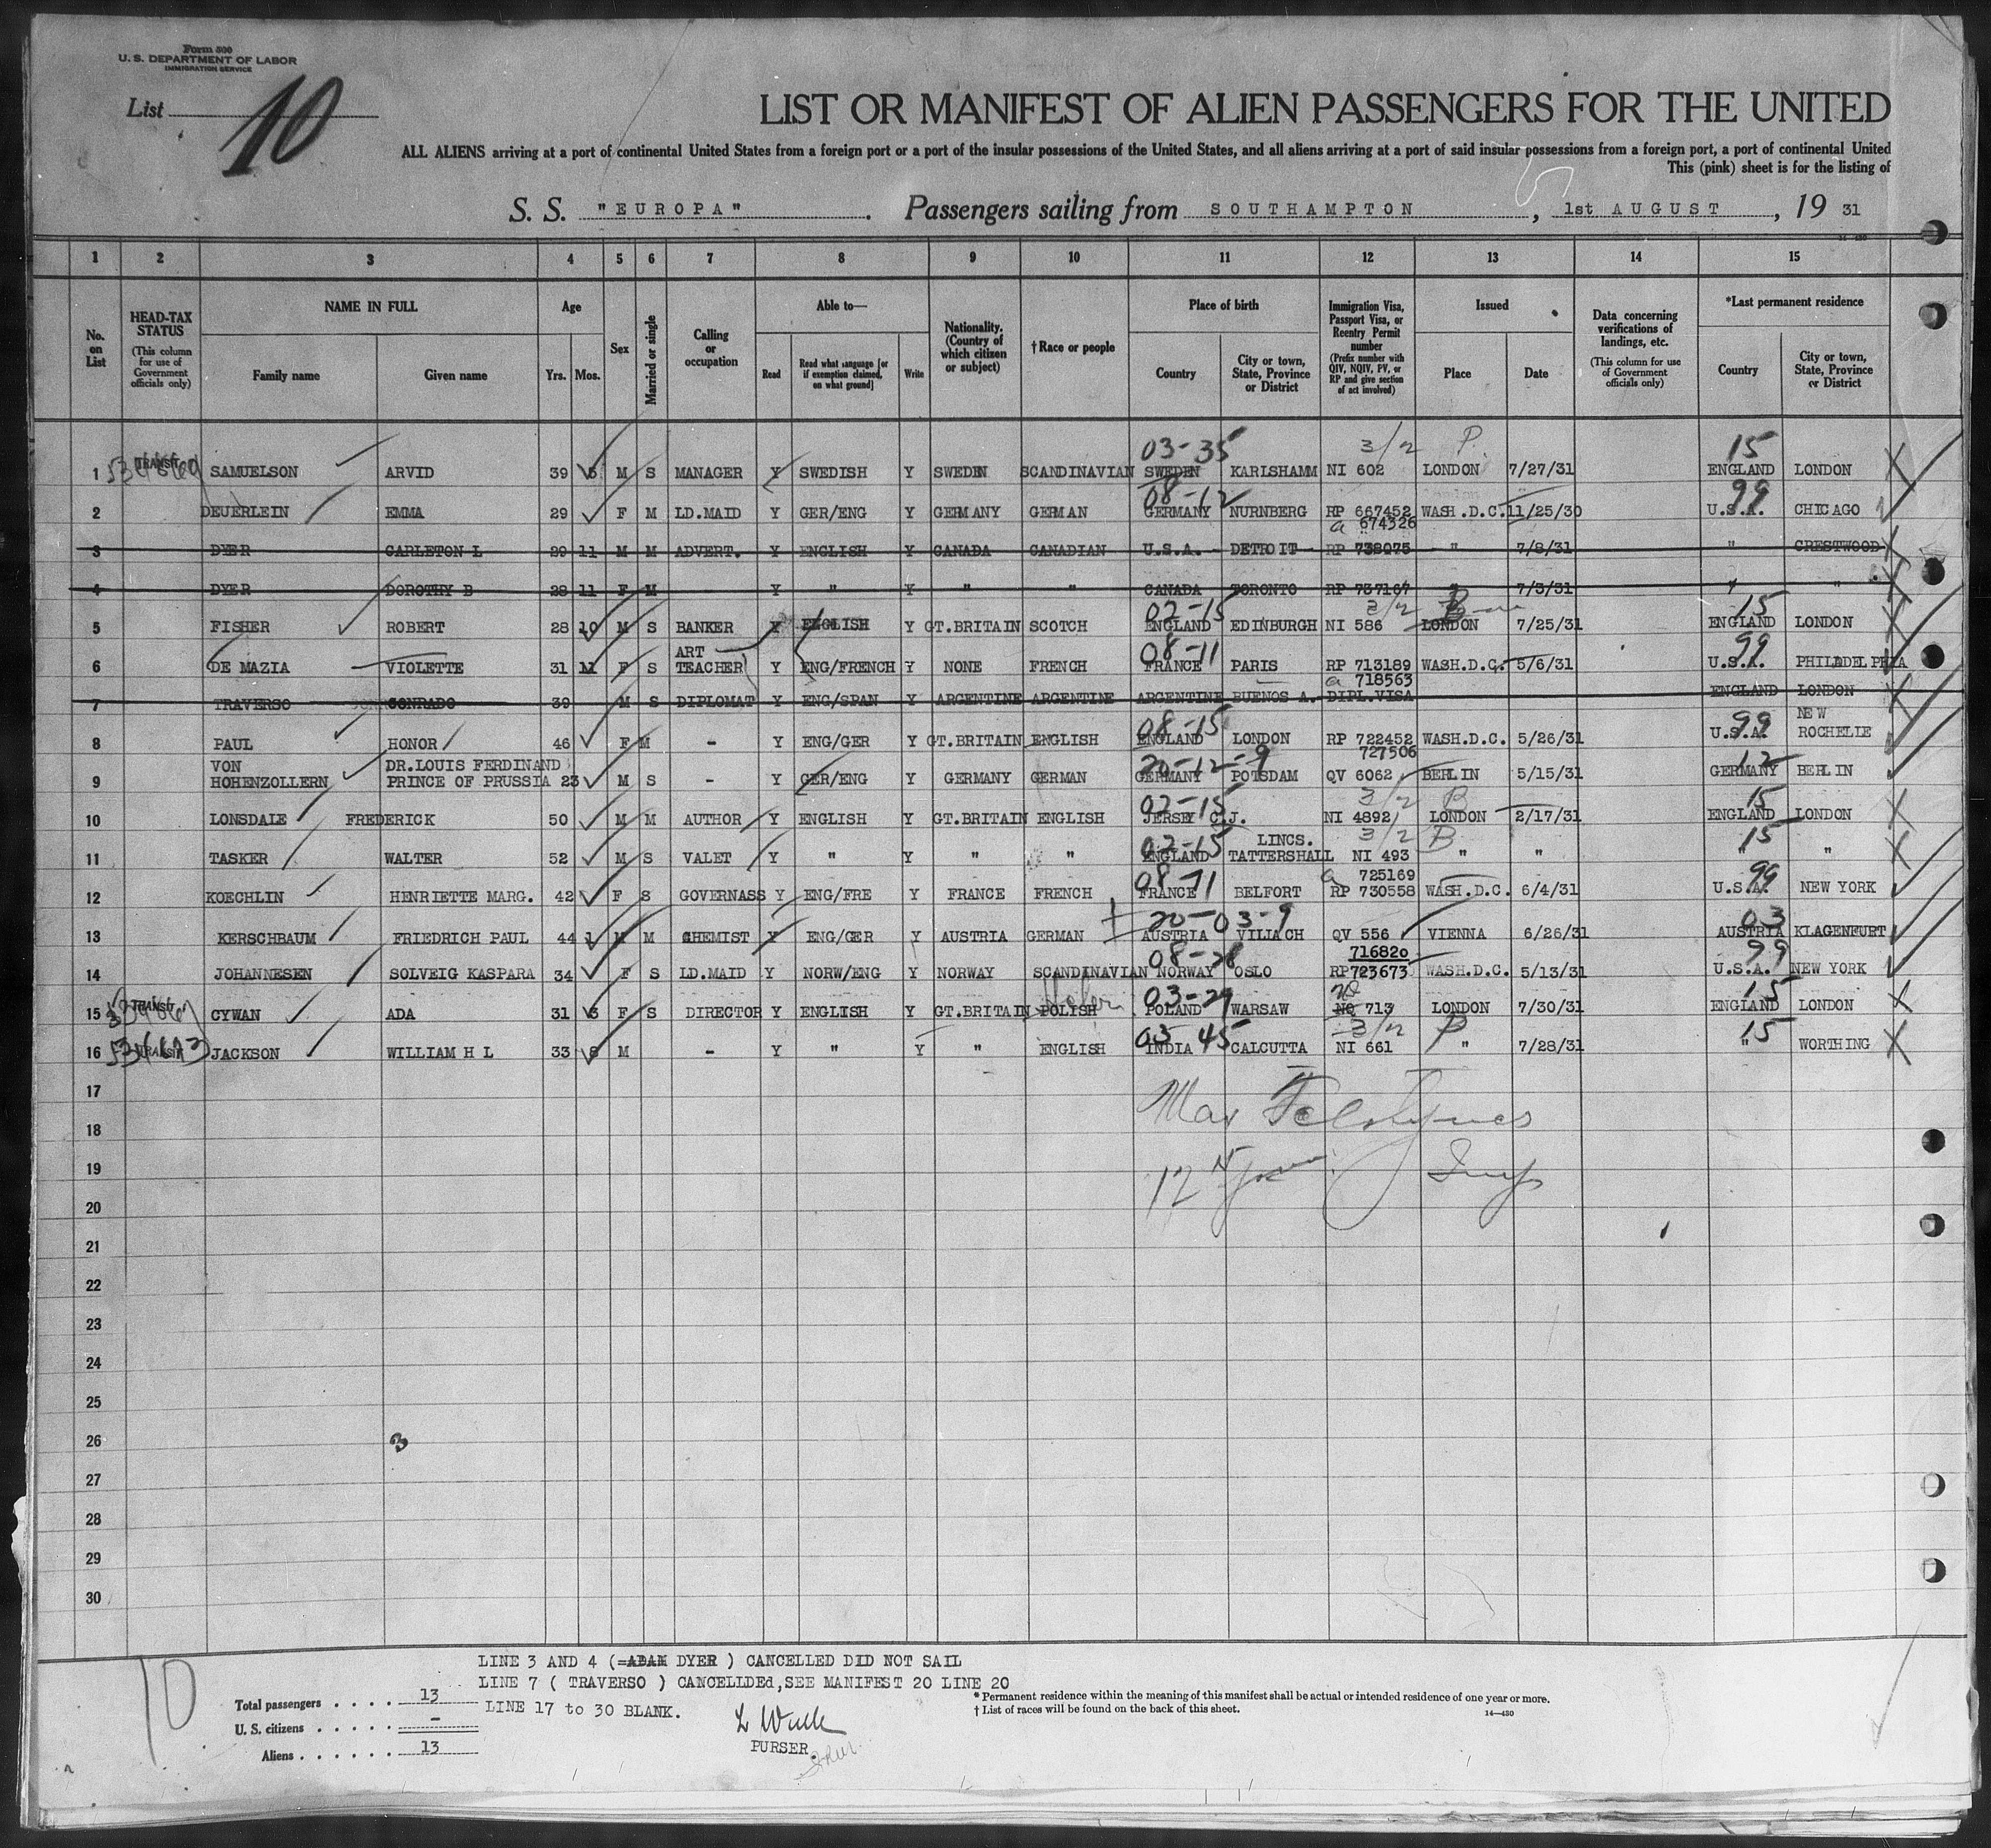 Form 500
U. S. DEPARTMENT OF LABOR
IMMIGRATION SERVICE
List 10
LIST OR MANIFEST OF ALIEN PASSENGERS FOR THE UNITED
ALL ALIENS arriving at a port of continental United States from a foreign port or a port of the insular possessions of the United States, and all aliens arriving at a port of said insular possessions from a foreign port, a port of continental United
This (pink) sheet is for the listing of
S. S. "EUROPA" . Passengers sailing from SOUTHAMPTON , 1st AUGUST , 19 31
1 2 3 4 5 6 7 8 9 10 11 12 13 14 15
No. on List
HEAD-TAX STATUS (This column for use of Government officials only)
NAME IN FULL Family name Given name
Age Yrs. Mos.
Sex
Married or single
Calling or occupation
Able to— Read Read what language [or if exemption claimed, on what ground] Write
Nationality. (Country of which citizen or subject)
† Race or people
Place of birth Country City or town, State, Province or District
Immigration Visa, Passport Visa, or Reentry Permit number (Prefix number with QIV, NQIV, PV, or RP and give section of act involved)
Issued Place Date
Data concerning verifications of landings, etc. (This column for use of Government officials only)
*Last permanent residence Country City or town, State, Province or District
03-35 3/2 P. 15
1 TRANSIT SAMUELSON ARVID 39 5 M S MANAGER Y SWEDISH Y SWEDEN SCANDINAVIAN SWEDEN KARLSHAMM NI 602 LONDON 7/27/31 ENGLAND LONDON
08-12 99
2 DEUERLEIN EMMA 29 F M LD.MAID Y GER/ENG Y GERMANY GERMAN GERMANY NURNBERG RP 667452 WASH.D.C. 11/25/30 U.S.A. CHICAGO
a 674326
3 DYER CARLETON L 29 11 M M ADVERT. Y ENGLISH Y CANADA CANADIAN U.S.A. DETROIT RP 738075 " 7/8/31 " CRESTWOOD
4 DYER DOROTHY B 28 11 F M Y " Y " " CANADA TORONTO RP 737167 " 7/3/31 " "
02-15 3/2 B 15
5 FISHER ROBERT 28 10 M S BANKER Y ENGLISH Y GT.BRITAIN SCOTCH ENGLAND EDINBURGH NI 586 LONDON 7/25/31 ENGLAND LONDON
ART 08-11 99
6 DE MAZIA VIOLETTE 31 11 F S TEACHER Y ENG/FRENCH Y NONE FRENCH FRANCE PARIS RP 713189 WASH.D.C. 5/6/31 U.S.A. PHILADELPHIA
a 718563
7 TRAVERSO CONRADO 39 M S DIPLOMAT Y ENG/SPAN Y ARGENTINE ARGENTINE ARGENTINE BUENOS A. DIPL.VISA ENGLAND LONDON
08-15 99 NEW
8 PAUL HONOR 46 F M - Y ENG/GER Y GT.BRITAIN ENGLISH ENGLAND LONDON RP 722452 WASH.D.C. 5/26/31 U.S.A. ROCHELLE
727506
VON DR.LOUIS FERDINAND 20-12-9 12
9 HOHENZOLLERN PRINCE OF PRUSSIA 23 M S - Y GER/ENG Y GERMANY GERMAN GERMANY POTSDAM QV 6062 BERLIN 5/15/31 GERMANY BERLIN
02-15 3/2 B 15
10 LONSDALE FREDERICK 50 M M AUTHOR Y ENGLISH Y GT.BRITAIN ENGLISH JERSEY C.J. NI 4892 LONDON 2/17/31 ENGLAND LONDON
02-15 LINCS. 3/2 B 15
11 TASKER WALTER 52 M S VALET Y " Y " " ENGLAND TATTERSHALL NI 493 " " " "
08-11 a 725169 99
12 KOECHLIN HENRIETTE MARG. 42 F S GOVERNASS Y ENG/FRE Y FRANCE FRENCH FRANCE BELFORT RP 730558 WASH.D.C. 6/4/31 U.S.A. NEW YORK
20-03-9 03
13 KERSCHBAUM FRIEDRICH PAUL 44 1 M M CHEMIST Y ENG/GER Y AUSTRIA GERMAN AUSTRIA VILIACH QV 556 VIENNA 6/26/31 AUSTRIA KLAGENFURT
08-28 716820 99
14 JOHANNESEN SOLVEIG KASPARA 34 F S LD.MAID Y NORW/ENG Y NORWAY SCANDINAVIAN NORWAY OSLO RP 723673 WASH.D.C. 5/13/31 U.S.A. NEW YORK
03-29 15
15 TRANSIT CYWAN ADA 31 3 F S DIRECTOR Y ENGLISH Y GT.BRITAIN POLISH POLAND WARSAW NQ 713 LONDON 7/30/31 ENGLAND LONDON
03 45 3/2 P 15
16 TRANSIT JACKSON WILLIAM H L 33 8 M - Y " Y " ENGLISH INDIA CALCUTTA NI 661 " 7/28/31 " WORTHING
17
18
19
20
21
22
23
24
25
26 3
27
28
29
30
10
LINE 3 AND 4 (=ADAM DYER ) CANCELLED DID NOT SAIL
LINE 7 ( TRAVERSO ) CANCELLDEd,SEE MANIFEST 20 LINE 20
LINE 17 to 30 BLANK.
Total passengers . . . . 13
U. S. citizens . . . . . -
Aliens . . . . . . 13
PURSER.
* Permanent residence within the meaning of this manifest shall be actual or intended residence of one year or more.
† List of races will be found on the back of this sheet.
14—430